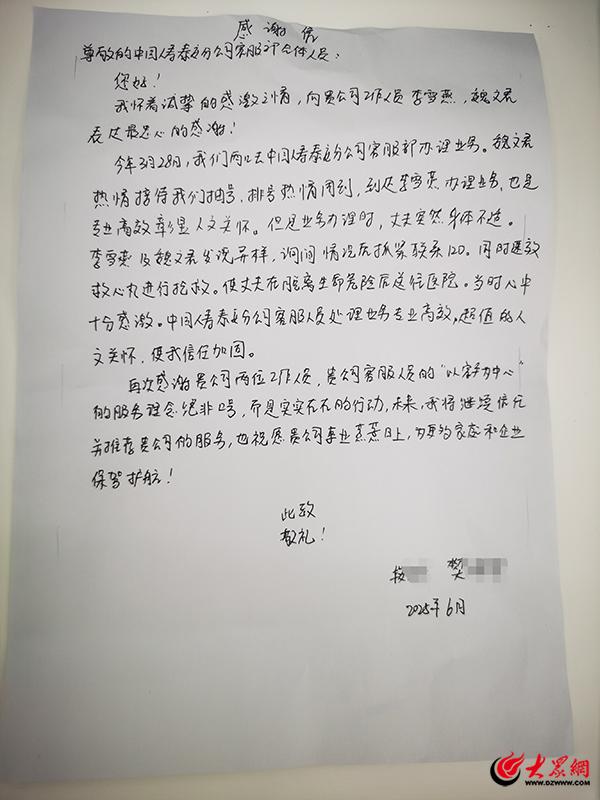 感谢信
尊敬的中国人寿泰安分公司客服部全体人员：
您好！
我怀着诚挚的感激之情，向贵公司工作人员李雪燕，魏文君
表达最衷心的感谢！
今年3月28日，我们两口去中国人寿泰安分公司客服部办理业务。魏文君
热情接待我们抽号，排号热情周到，到达李雪燕办理业务，也是
专业高效彰显人文关怀。但是业务办理时，丈夫突然身体不适。
李雪燕及魏文君发现异样，询问情况后抓紧联系120。同时速效
救心丸进行抢救。使丈夫在脱离生命危险后送往医院。当时心中
十分感激。中国人寿泰安分公司客服人员处理业务专业高效，超值的人
文关怀，使我信任加固。
再次感谢贵公司两位工作人员，贵公司客服人员的“以客户为中心”
的服务理念绝非口号，而是实实在在的行动，未来，我将继续信任
并推荐贵公司的服务，也祝愿贵公司事业蒸蒸日上，为更多的家庭和企业
保驾护航！
此致
敬礼！
樊
2025年6月
大众網
WWW.DZWWW.COM